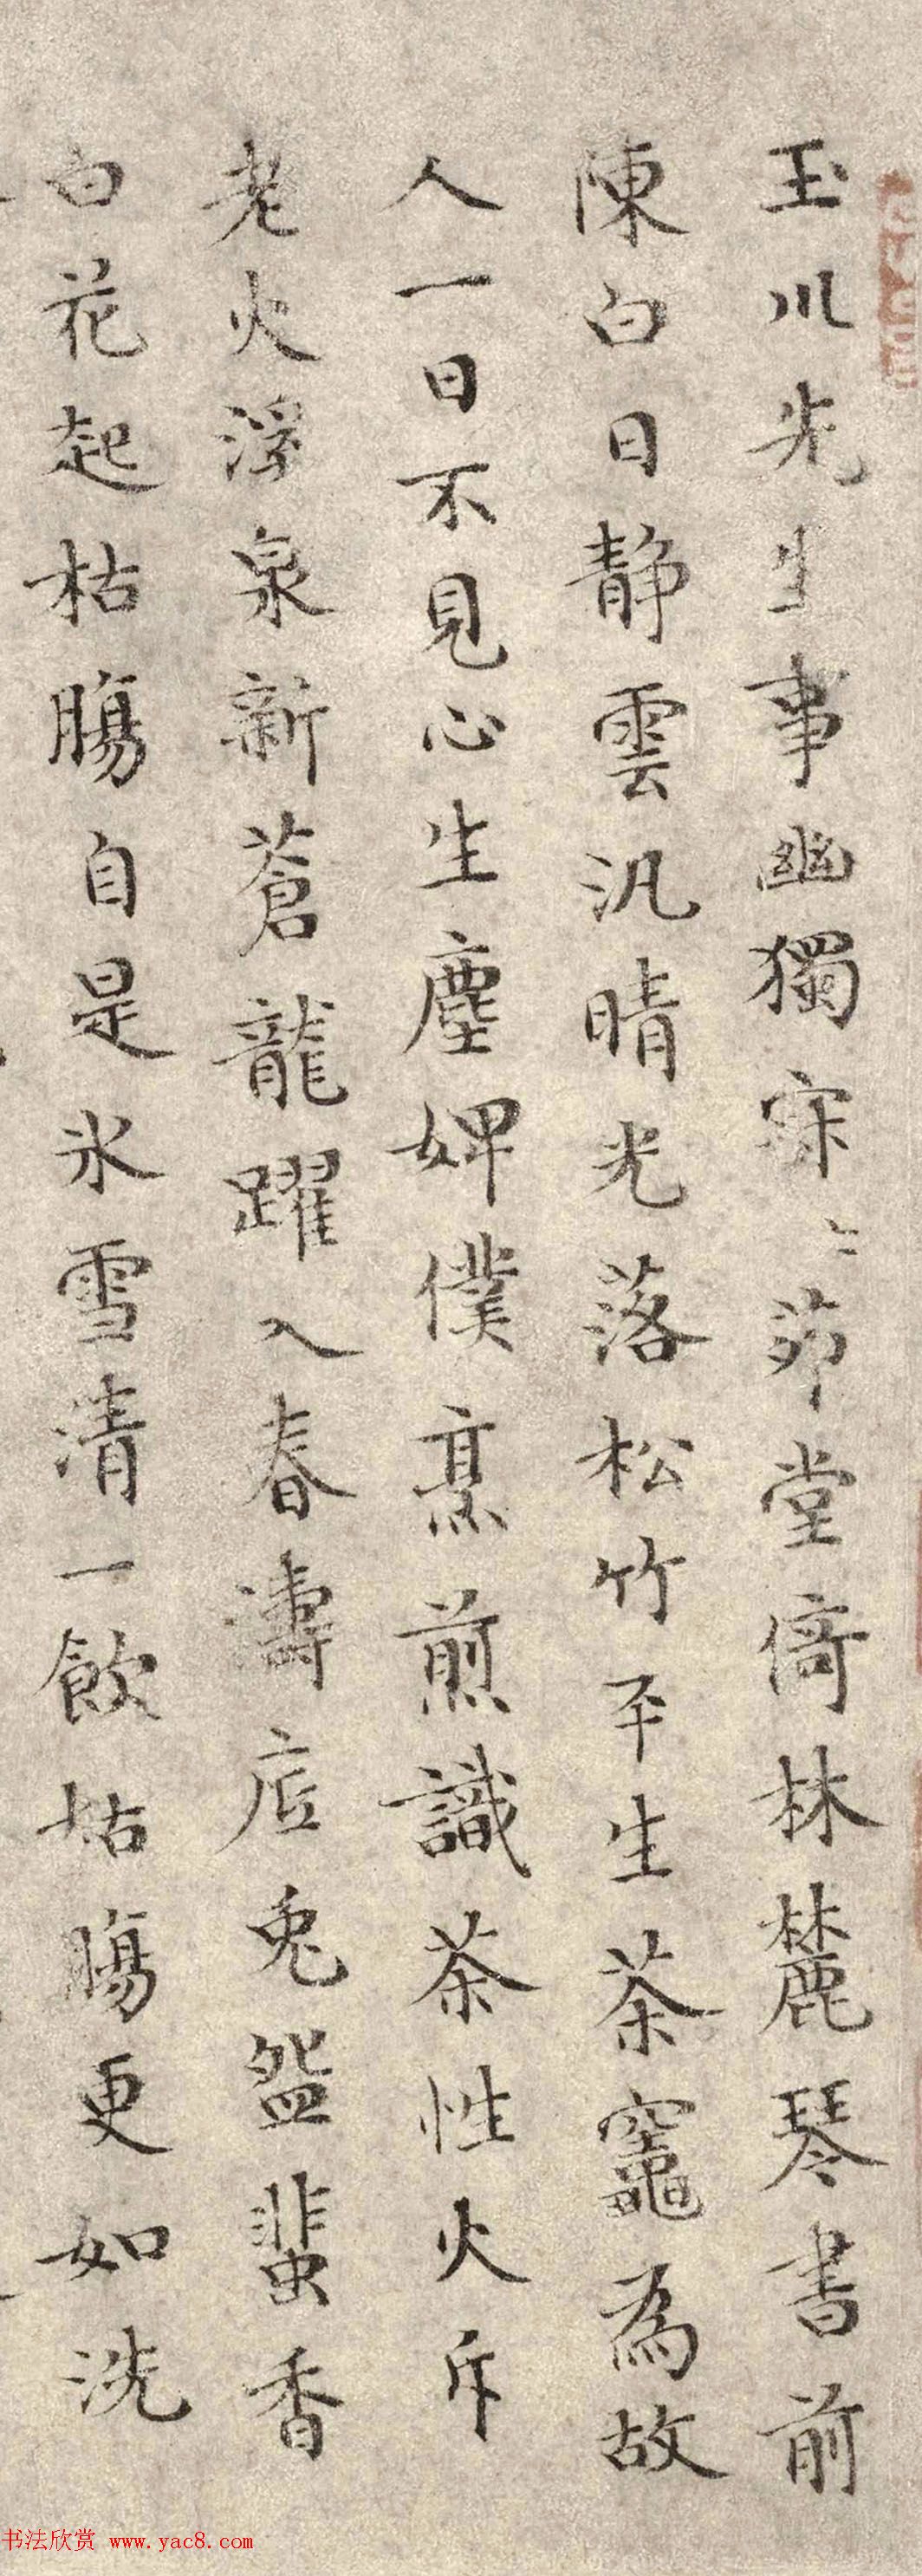 玉川先生事幽獨寂〻茆堂倚林麓琴書前
陳白日靜雲汎晴光落松竹平生茶竈為故
人一日不見心生塵婢僕烹煎識茶性火斥
老火浮泉新蒼龍躍入春濤店兎盌蜚香
白花起枯腸自是氷雪清一飲枯腸更如洗
书法欣赏 www.yac8.com